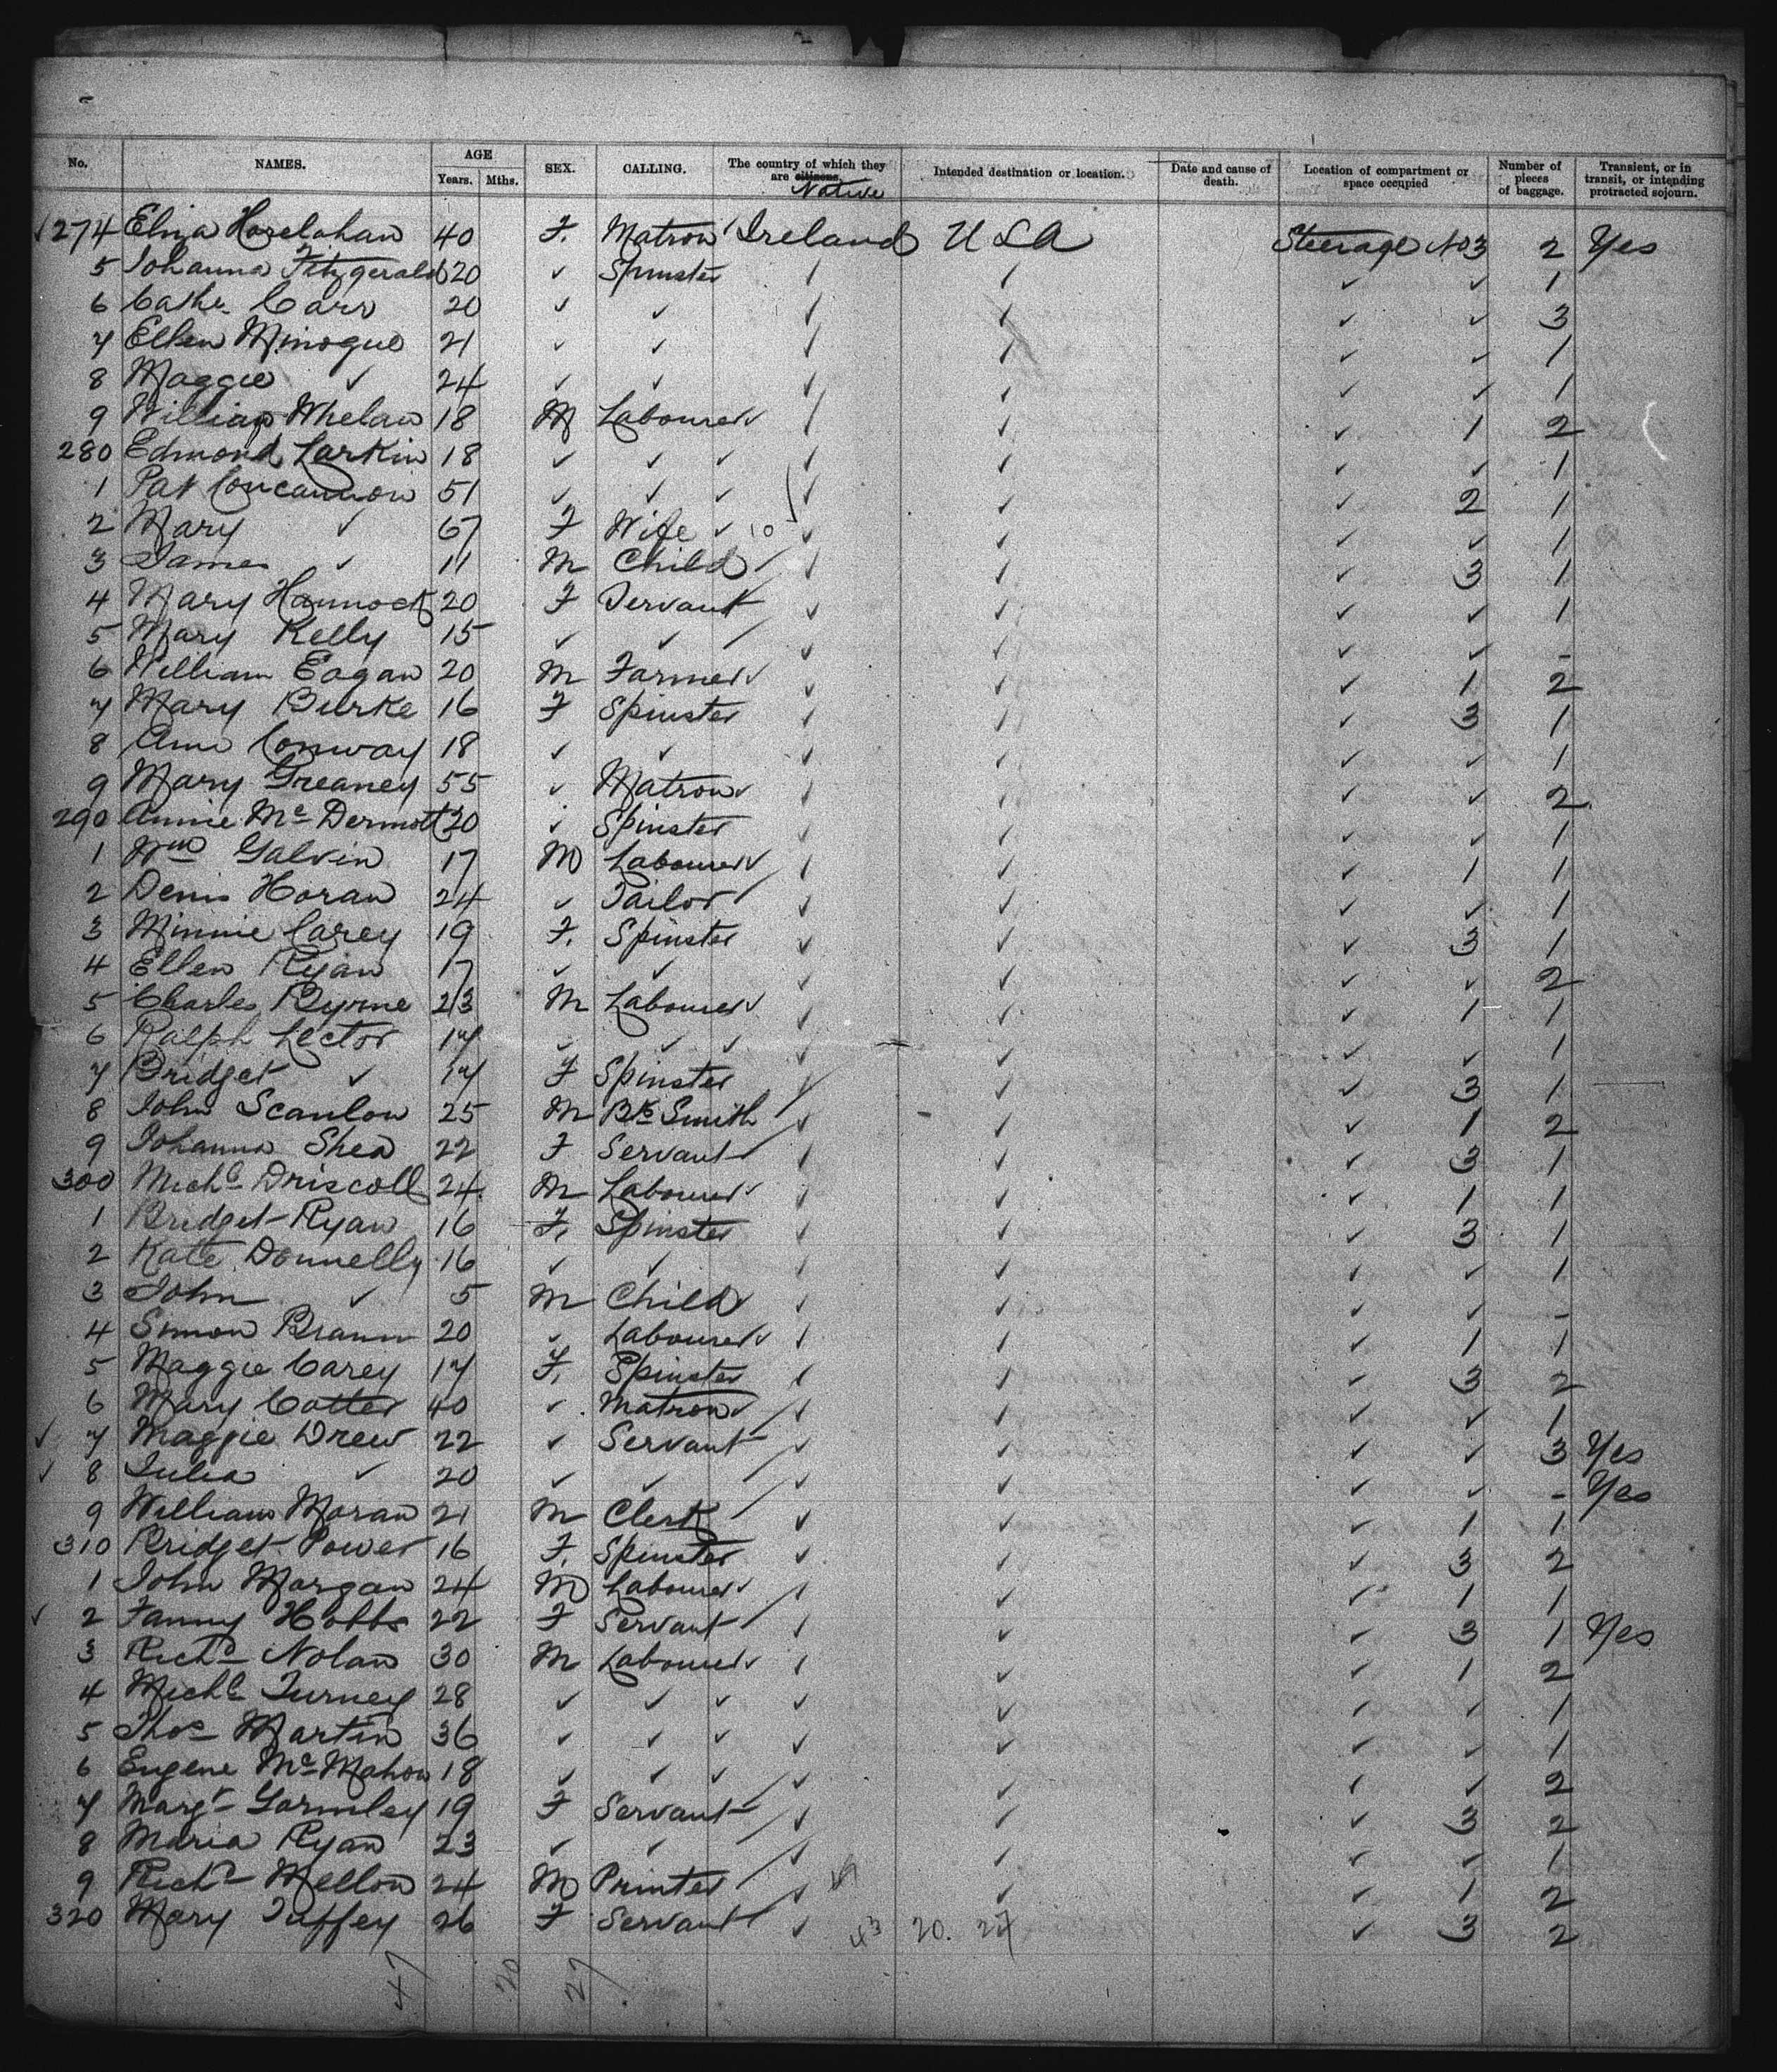 No. NAMES. AGE Years. Mths. SEX. CALLING. The country of which they are citizens. Native Intended destination or location. Date and cause of death. Location of compartment or space occupied Number of pieces of baggage. Transient, or in transit, or intending protracted sojourn.
✓ 274 Eliza 40 F. Matron Ireland USA Steerage No 3 2 Yes
5 Johanna Fitzgerald 20 ✓ Spinster ✓ ✓ ✓ ✓ 1
6 Cathe Carr 20 ✓ ✓ ✓ ✓ ✓ ✓ 3
7 Ellen Minogue 21 ✓ ✓ ✓ ✓ ✓ ✓ 1
8 Maggie ✓ 24 ✓ ✓ ✓ ✓ ✓ ✓ 1
9 William Whelan 18 M Labourer ✓ ✓ ✓ 1 2
280 Edmond Larkin 18 ✓ ✓ ✓ ✓ ✓ ✓ 1
1 Pat Concannon 51 ✓ ✓ ✓ ✓ ✓ 2 1
2 Mary ✓ 67 F Wife ✓ ✓ ✓ ✓ 1
3 James ✓ 11 M Child ✓ ✓ ✓ 3 1
4 Mary 20 F Servant ✓ ✓ ✓ ✓ 1
5 Mary Kelly 15 ✓ ✓ ✓ ✓ ✓ ✓ -
6 William Eagan 20 M Farmer ✓ ✓ ✓ 1 2
7 Mary Burke 16 F Spinster ✓ ✓ ✓ 3 1
8 Ann Conway 18 ✓ ✓ ✓ ✓ ✓ ✓ 1
9 Mary Greaney 55 ✓ Matron ✓ ✓ ✓ ✓ 2
290 Annie McDermott 20 ✓ Spinster ✓ ✓ ✓ ✓ 1
1 Wm Galvin 17 M Labourer ✓ ✓ ✓ 1 1
2 Denis Horan 24 ✓ Tailor ✓ ✓ ✓ ✓ 1
3 Minnie Carey 19 F. Spinster ✓ ✓ ✓ 3 1
4 Ellen Ryan 17 ✓ ✓ ✓ ✓ ✓ ✓ 2
5 Charles Byrne 23 M Labourer ✓ ✓ ✓ 1 1
6 Ralph Lector 17 ✓ ✓ ✓ ✓ ✓ ✓ 1
7 Bridget ✓ 17 F Spinster ✓ ✓ ✓ 3 1
8 John Scanlon 25 M Bk Smith ✓ ✓ ✓ 1 2
9 Johanna Shea 22 F Servant ✓ ✓ ✓ 3 1
300 Michl Driscoll 24 M Labourer ✓ ✓ ✓ 1 1
1 Bridget Ryan 16 F. Spinster ✓ ✓ ✓ 3 1
2 Kate Donnelly 16 ✓ ✓ ✓ ✓ ✓ ✓ 1
3 John ✓ 5 M Child ✓ ✓ ✓ ✓ -
4 Simon 20 ✓ Labourer ✓ ✓ ✓ 1 1
5 Maggie Carey 17 F. Spinster ✓ ✓ ✓ 3 2
6 Mary Cotter 40 ✓ Matron ✓ ✓ ✓ ✓ 1
✓ 7 Maggie Drew 22 ✓ Servant ✓ ✓ ✓ ✓ 3 Yes
✓ 8 Julia ✓ 20 ✓ ✓ ✓ ✓ ✓ ✓ - Yes
9 William Moran 21 M Clerk ✓ ✓ ✓ 1 1
310 Bridget Power 16 F. Spinster ✓ ✓ ✓ 3 2
1 John Morgan 24 M Labourer ✓ ✓ ✓ 1 1
✓ 2 Fanny Hobbs 22 F Servant ✓ ✓ ✓ 3 1 Yes
3 Richd Nolan 30 M Labourer ✓ ✓ ✓ 1 2
4 Michl 28 ✓ ✓ ✓ ✓ ✓ ✓ 1
5 Thos Martin 36 ✓ ✓ ✓ ✓ ✓ ✓ 1
6 Eugene McMahon 18 ✓ ✓ ✓ ✓ ✓ ✓ 2
7 Margt Gormley 19 F Servant ✓ ✓ ✓ 3 2
8 Maria Ryan 23 ✓ ✓ ✓ ✓ ✓ ✓ 1
9 Richd Mellon 24 M Printer ✓ ✓ ✓ 1 2
320 Mary Tuffey 26 F Servant ✓ 43 20. 27 ✓ 3 2
47 20 27